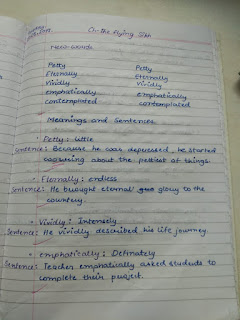 Oh the flying Sikh
New words
Petty Petty
Eternally Eternally
Vividly Vividly
emphatically emphatically
contemplated contemplated
Meanings and Sentences
• Petty : little
Sentence: Because he was depressed, he started
worrying about the pettiest of things.
• Eternally : endless
Sentence: He brought eternal glory to the
country.
• Vividly : Intensely
Sentence: He vividly described his life journey.
• emphatically : Definately
Sentence: Teacher emphatically asked students to
complete their project.